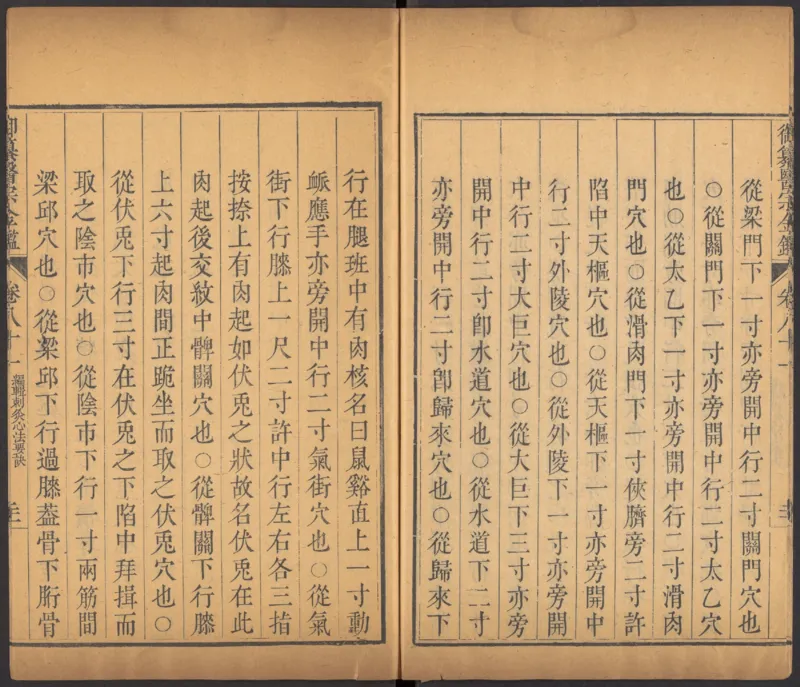 御纂醫宗金鑑 卷八十一
從梁門下一寸亦旁開中行二寸關門穴也
○從關門下一寸亦旁開中行二寸太乙穴
也○從太乙下一寸亦旁開中行二寸滑肉
門穴也○從滑肉門下一寸俠臍旁二寸許
陷中天樞穴也○從天樞下一寸亦旁開中
行二寸外陵穴也○從外陵下一寸亦旁開
中行二寸大巨穴也○從大巨下三寸亦旁
開中行二寸卽水道穴也○從水道下二寸
亦旁開中行二寸卽歸來穴也○從歸來下
行在腿班中有肉核名曰鼠谿直上一寸動
䘑應手亦旁開中行二寸氣街穴也○從氣
街下行膝上一尺二寸許中行左右各三指
按捺上有肉起如伏兎之狀故名伏兎在此
肉起後交紋中髀關穴也○從髀關下行膝
上六寸起肉間正跪坐而取之伏兎穴也○
從伏兎下行三寸在伏兎之下陷中拜揖而
取之陰市穴也○從陰市下行一寸兩筋間
梁邱穴也○從梁邱下行過膝蓋骨下胻骨
御纂醫宗金鑑 卷八十一 編輯刺灸心法要訣